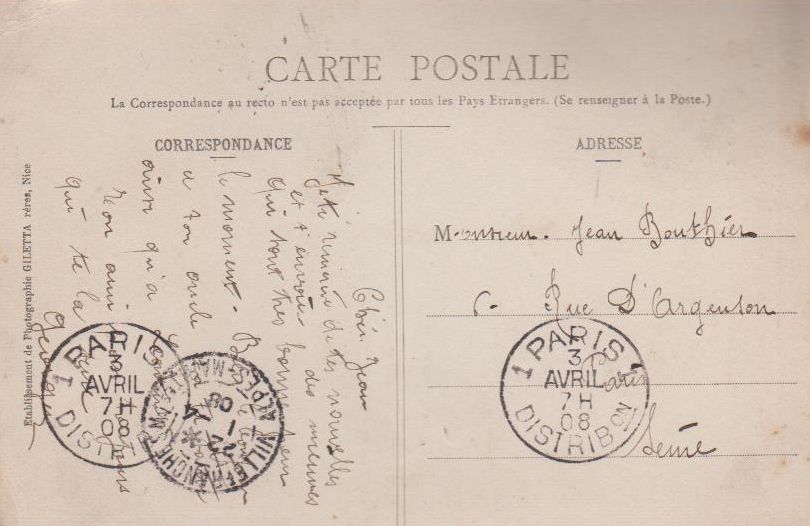 CARTE POSTALE
La Correspondance au recto n'est pas acceptée par tous les Pays Etrangers. (Se renseigner à la Poste.)
CORRESPONDANCE
Cher Jean
de tes nouvelles
et t'envoie des miennes
qui sont très bonnes pour
le moment.
a ton oncle
ainsi qu'à
ton ami
qui te la
Georges
Etablissement de Photographie GILETTA rères, Nice
1 PARIS 1
3
AVRIL
7H
08
DISTRIB
VILLEFRANCHE
ALPES-MAR
08
ADRESSE
Monsieur Jean Bouthier
6 Rue D'Argenson
Paris
Seine
1 PARIS 1
3
AVRIL
7H
08
DISTRIBON